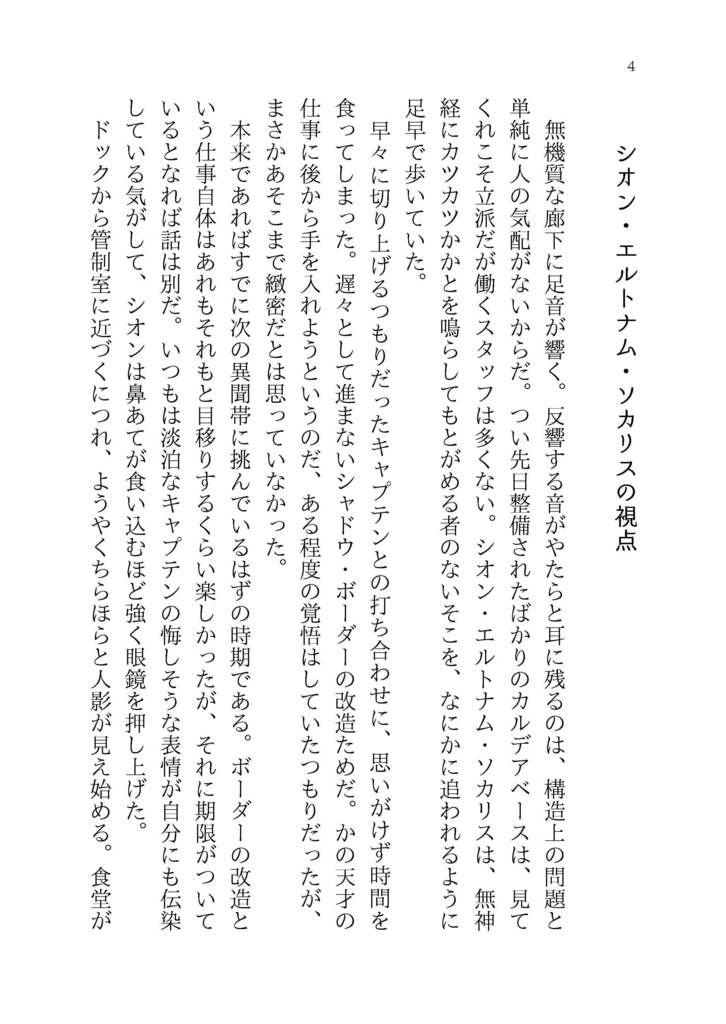 4
シオン・エルトナム・ソカリスの視点
無機質な廊下に足音が響く。反響する音がやたらと耳に残るのは、構造上の問題と
単純に人の気配がないからだ。つい先日整備されたばかりのカルデアベースは、見て
くれこそ立派だが働くスタッフは多くない。シオン・エルトナム・ソカリスは、無神
経にカツカツかかとを鳴らしてもとがめる者のないそこを、なにかに追われるように
足早で歩いていた。
早々に切り上げるつもりだったキャプテンとの打ち合わせに、思いがけず時間を
食ってしまった。遅々として進まないシャドウ・ボーダーの改造ためだ。かの天才の
仕事に後から手を入れようというのだ、ある程度の覚悟はしていたつもりだったが、
まさかあそこまで緻密だとは思っていなかった。
本来であればすでに次の異聞帯に挑んでいるはずの時期である。ボーダーの改造と
いう仕事自体はあれもそれもと目移りするくらい楽しかったが、それに期限がついて
いるとなれば話は別だ。いつもは淡泊なキャプテンの悔しそうな表情が自分にも伝染
している気がして、シオンは鼻あてが食い込むほど強く眼鏡を押し上げた。
ドックから管制室に近づくにつれ、ようやくちらほらと人影が見え始める。食堂が